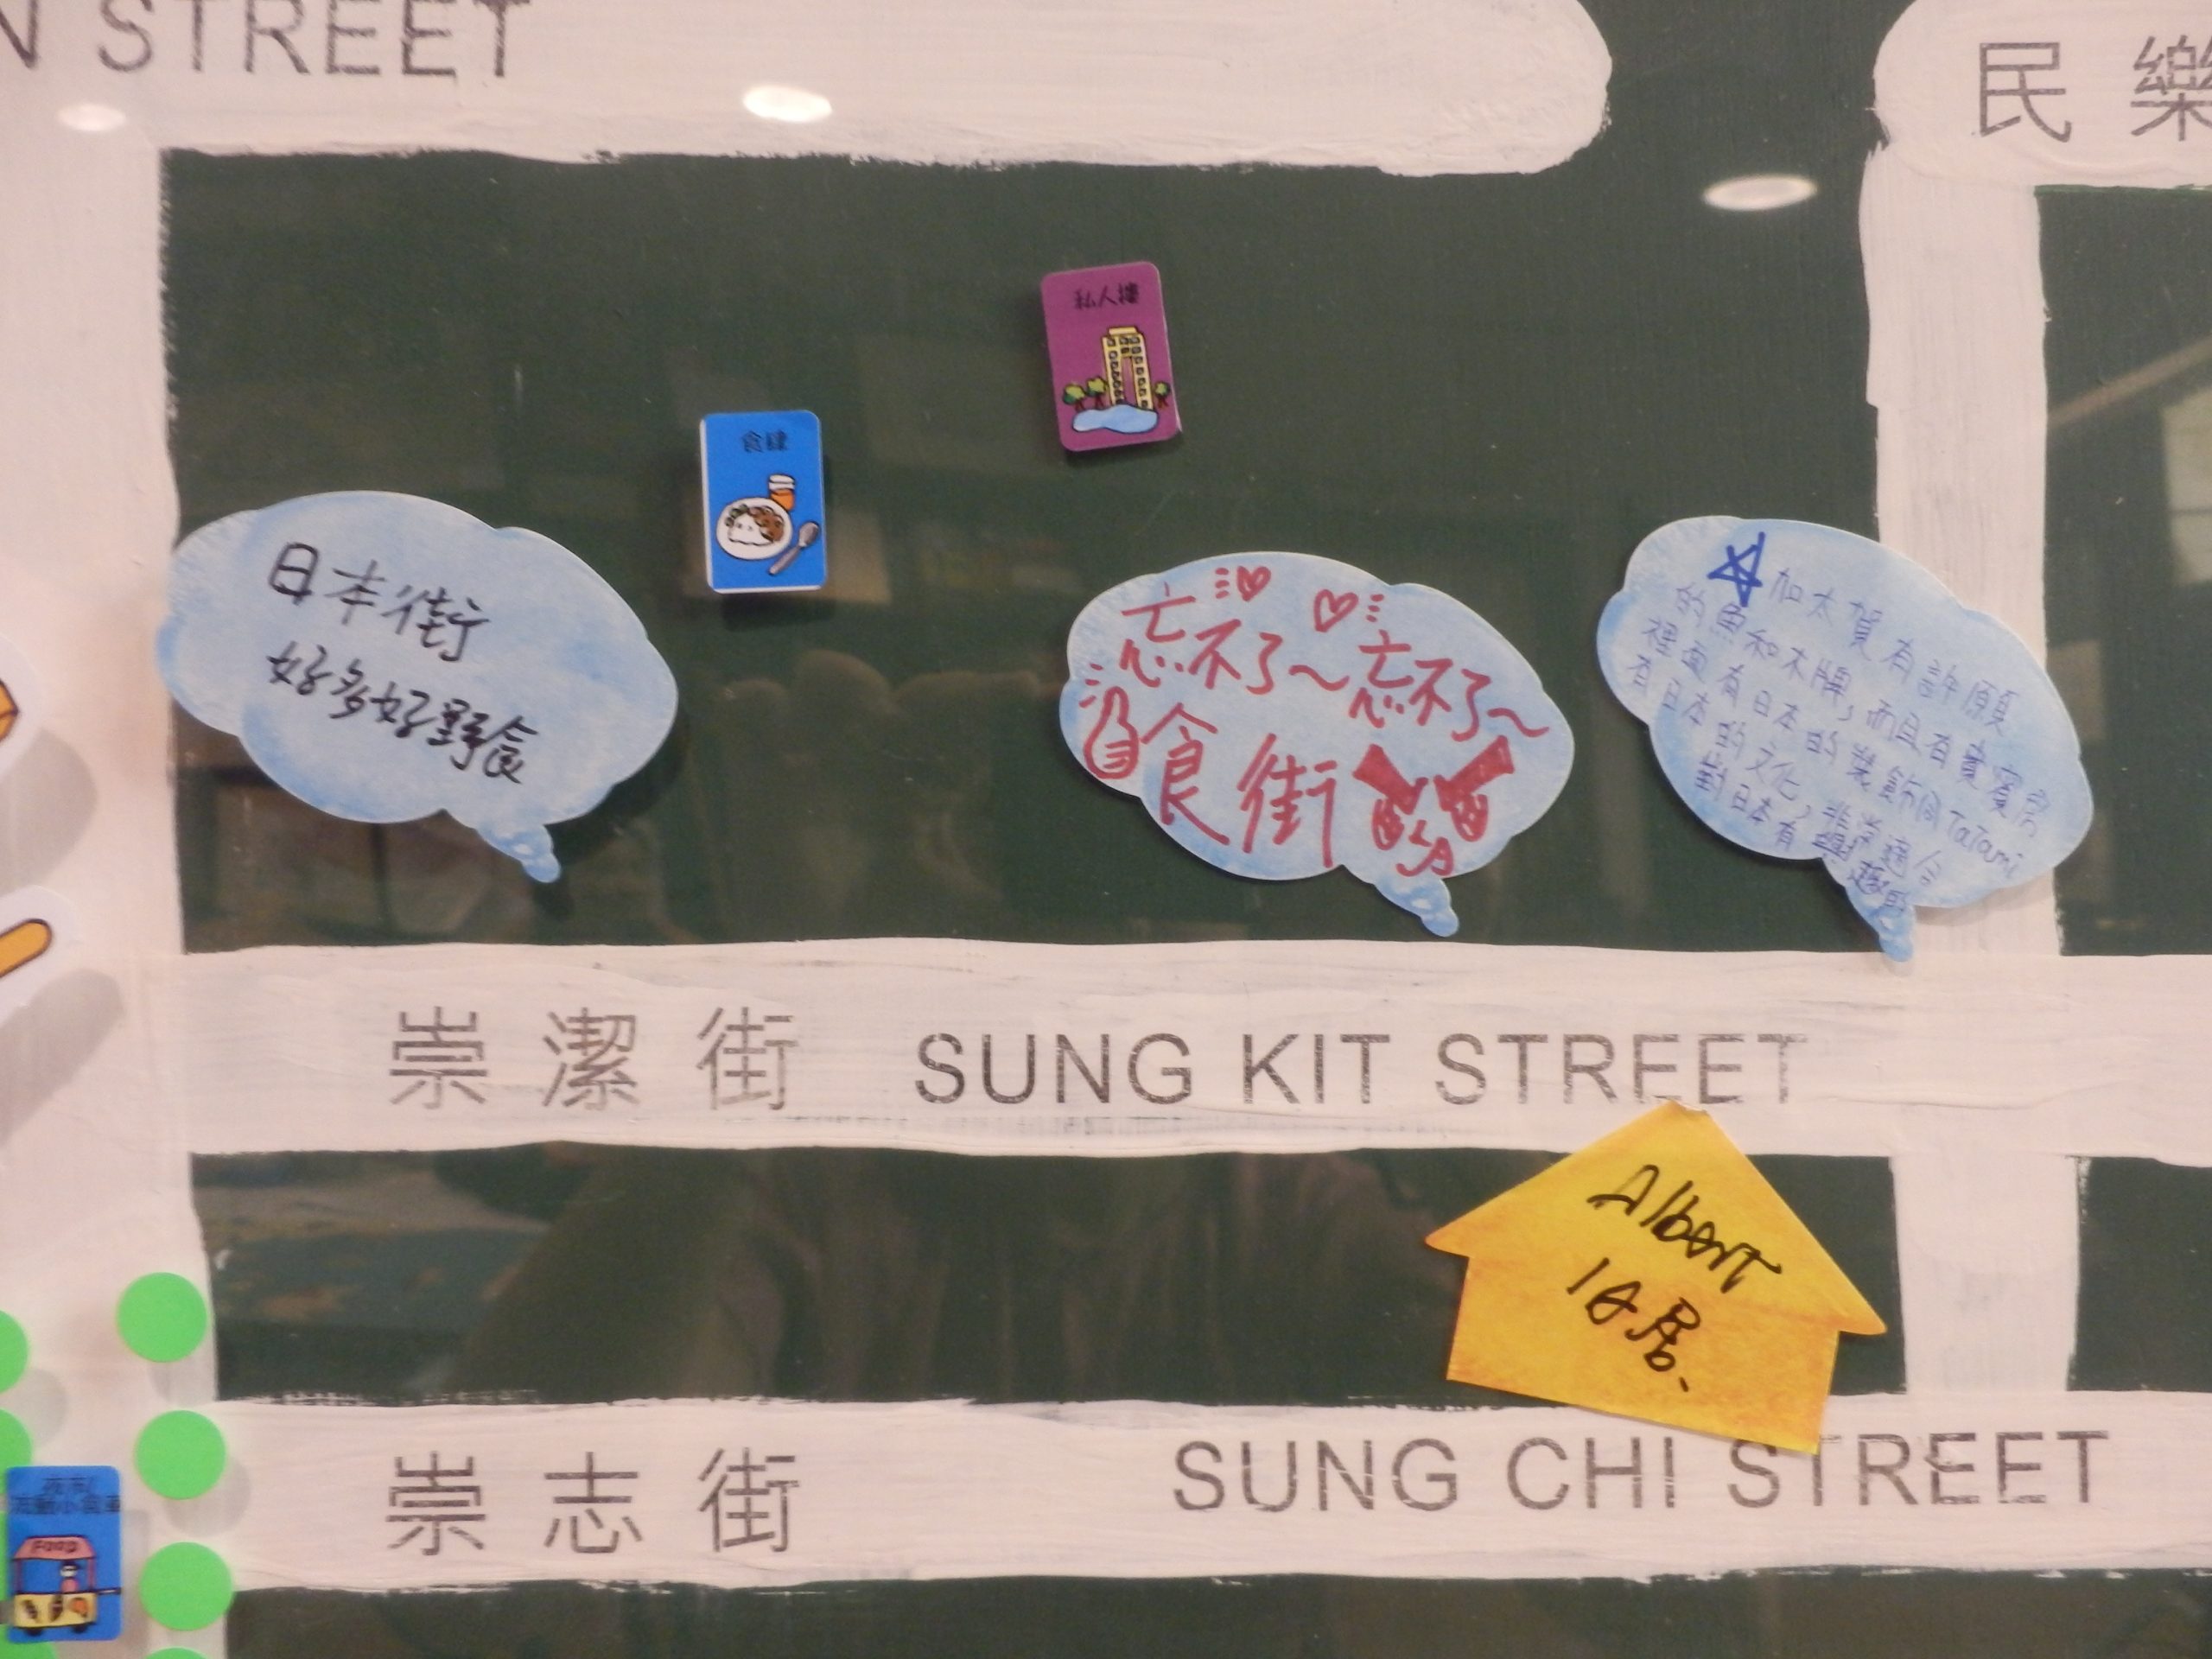 N STREET
民樂
私人樓
食肆
日本街
好多好野食
忘不了~忘不了~
食街
加太賀有許願
的魚和木牌,而且有貴賓房
裡面有日本的裝飾同TaTami
有日本的文化,非常適合
對日本有興趣的
崇潔街 SUNG KIT STREET
Albert
旧居、
崇志街 SUNG CHI STREET
FOOD